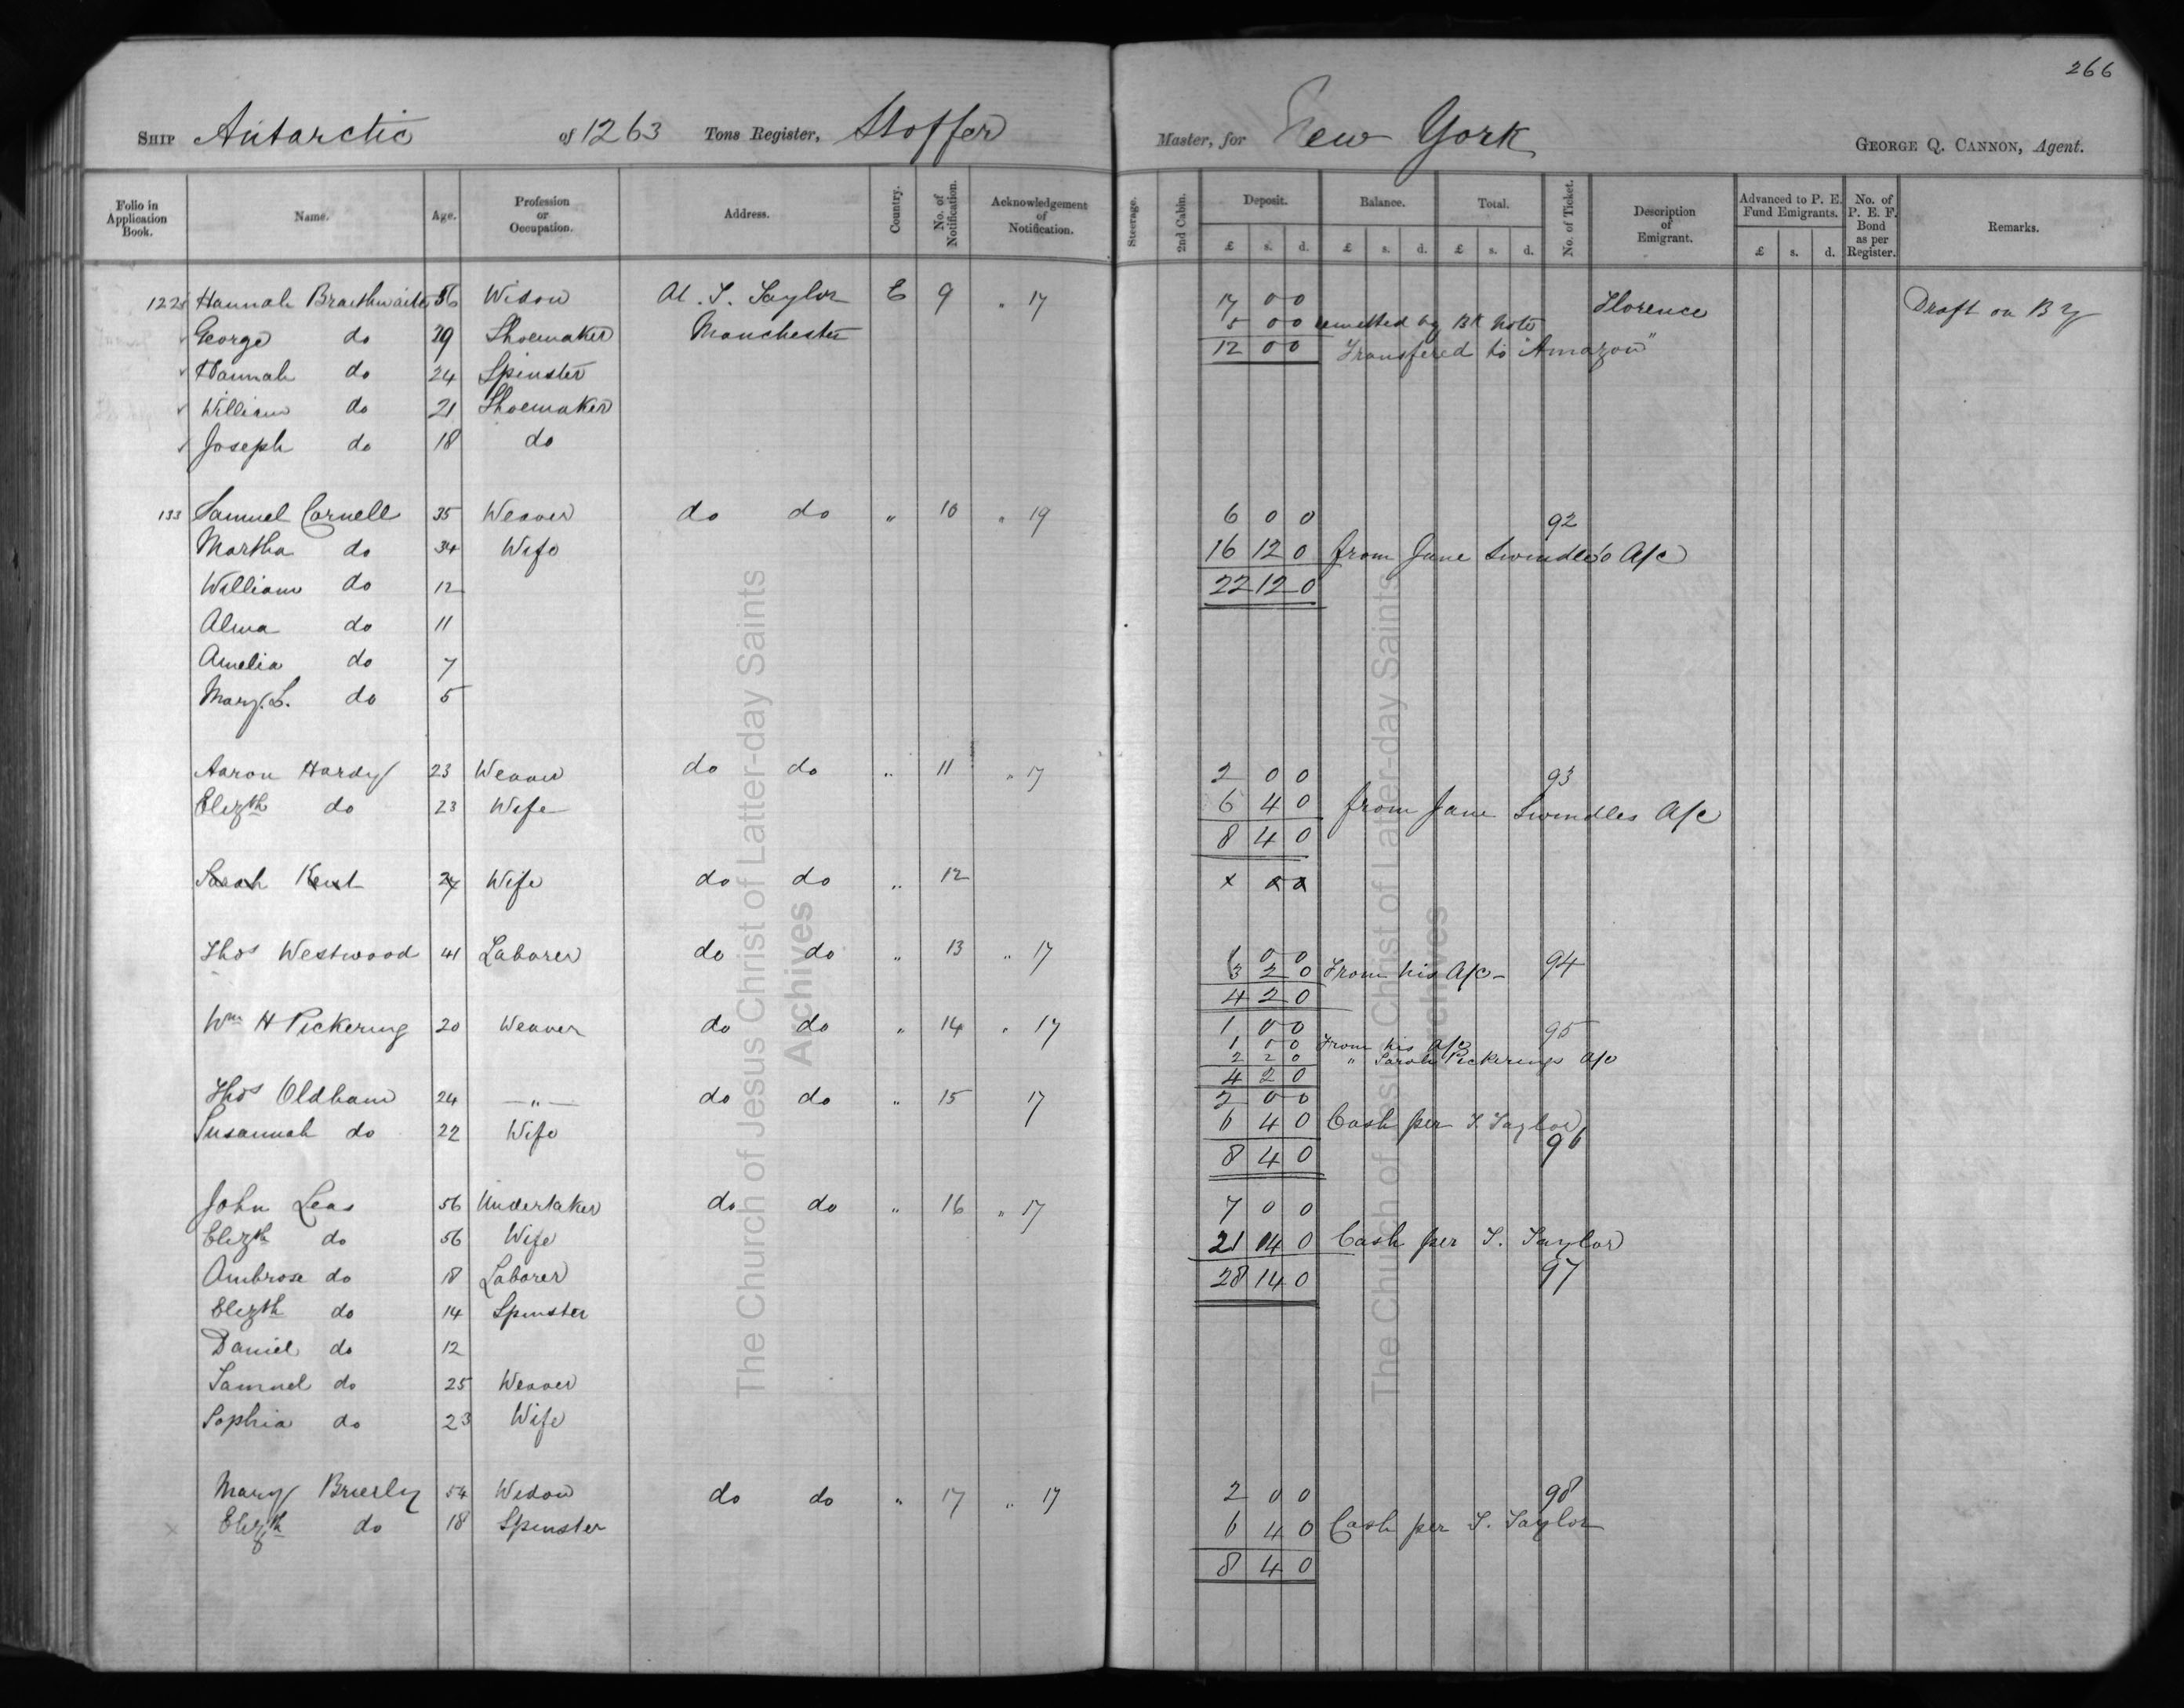 266
SHIP Antarctic of 1263 Tons Register, Stoffer Master, for New York GEORGE Q. CANNON, Agent.
Folio in Application Book. Name. Age. Profession or Occupation. Address. Country. No. of Notification. Acknowledgement of Notification. Steerage. 2nd Cabin. Deposit. Balance. Total. No. of Ticket. Description of Emigrant. Advanced to P. E. Fund Emigrants. No. of P. E. F. Bond as per Register. Remarks.
£ s. d. £ s. d. £ s. d. £ s. d.
122 Hannah Braithwaite 56 Widow At. T. Taylor E 9 " 17 17 0 0 Florence Draft on B Y
George do 29 Shoemaker Manchester 5 0 0 remitted by BK Note "
Hannah do 24 Spinster 12 0 0 Transfered to "Amazon"
William do 21 Shoemaker
Joseph do 18 do
133 Samuel Cornell 35 Weaver do do " 10 " 19 6 0 0 92
Martha do 34 Wife 16 12 0 from Jane Swindles A/c
William do 12 22 12 0
Alma do 11
Amelia do 7
Mary. L. do 5
Aaron Hardy 23 Weaver do do " 11 " 17 2 0 0 93
Elizth do 23 Wife 6 4 0 from Jane Swindles A/c
8 4 0
Sarah Kent 24 Wife do do " 12 x x x
Thos Westwood 41 Laborer do do " 13 " 17 1 0 0 94
3 2 0 From his A/c -
4 2 0
Wm H Pickering 20 Weaver do do " 14 " 17 1 0 0 95
1 0 0 From his A/c
2 2 0 " Sarah Pickerings A/c
4 2 0
Thos Oldham 24 — " — do do " 15 17 2 0 0
Susannah do 22 Wife 6 4 0 Cash per T. Taylor
8 4 0 96
John Leas 56 Undertaker do do " 16 " 17 7 0 0
Elizth do 56 Wife 21 14 0 Cash per T. Taylor
Ambrose do 18 Laborer 28 14 0 97
Elizth do 14 Spinster
Daniel do 12
Samuel do 25 Weaver
Sophia do 23 Wife
Mary Brierly 54 Widow do do " 17 " 17 2 0 0 98
x Elizth do 18 Spinster 6 4 0 Cash per T. Taylor
8 4 0
The Church of Jesus Christ of Latter-day Saints
Archives
The Church of Jesus Christ of Latter-day Saints
Archives